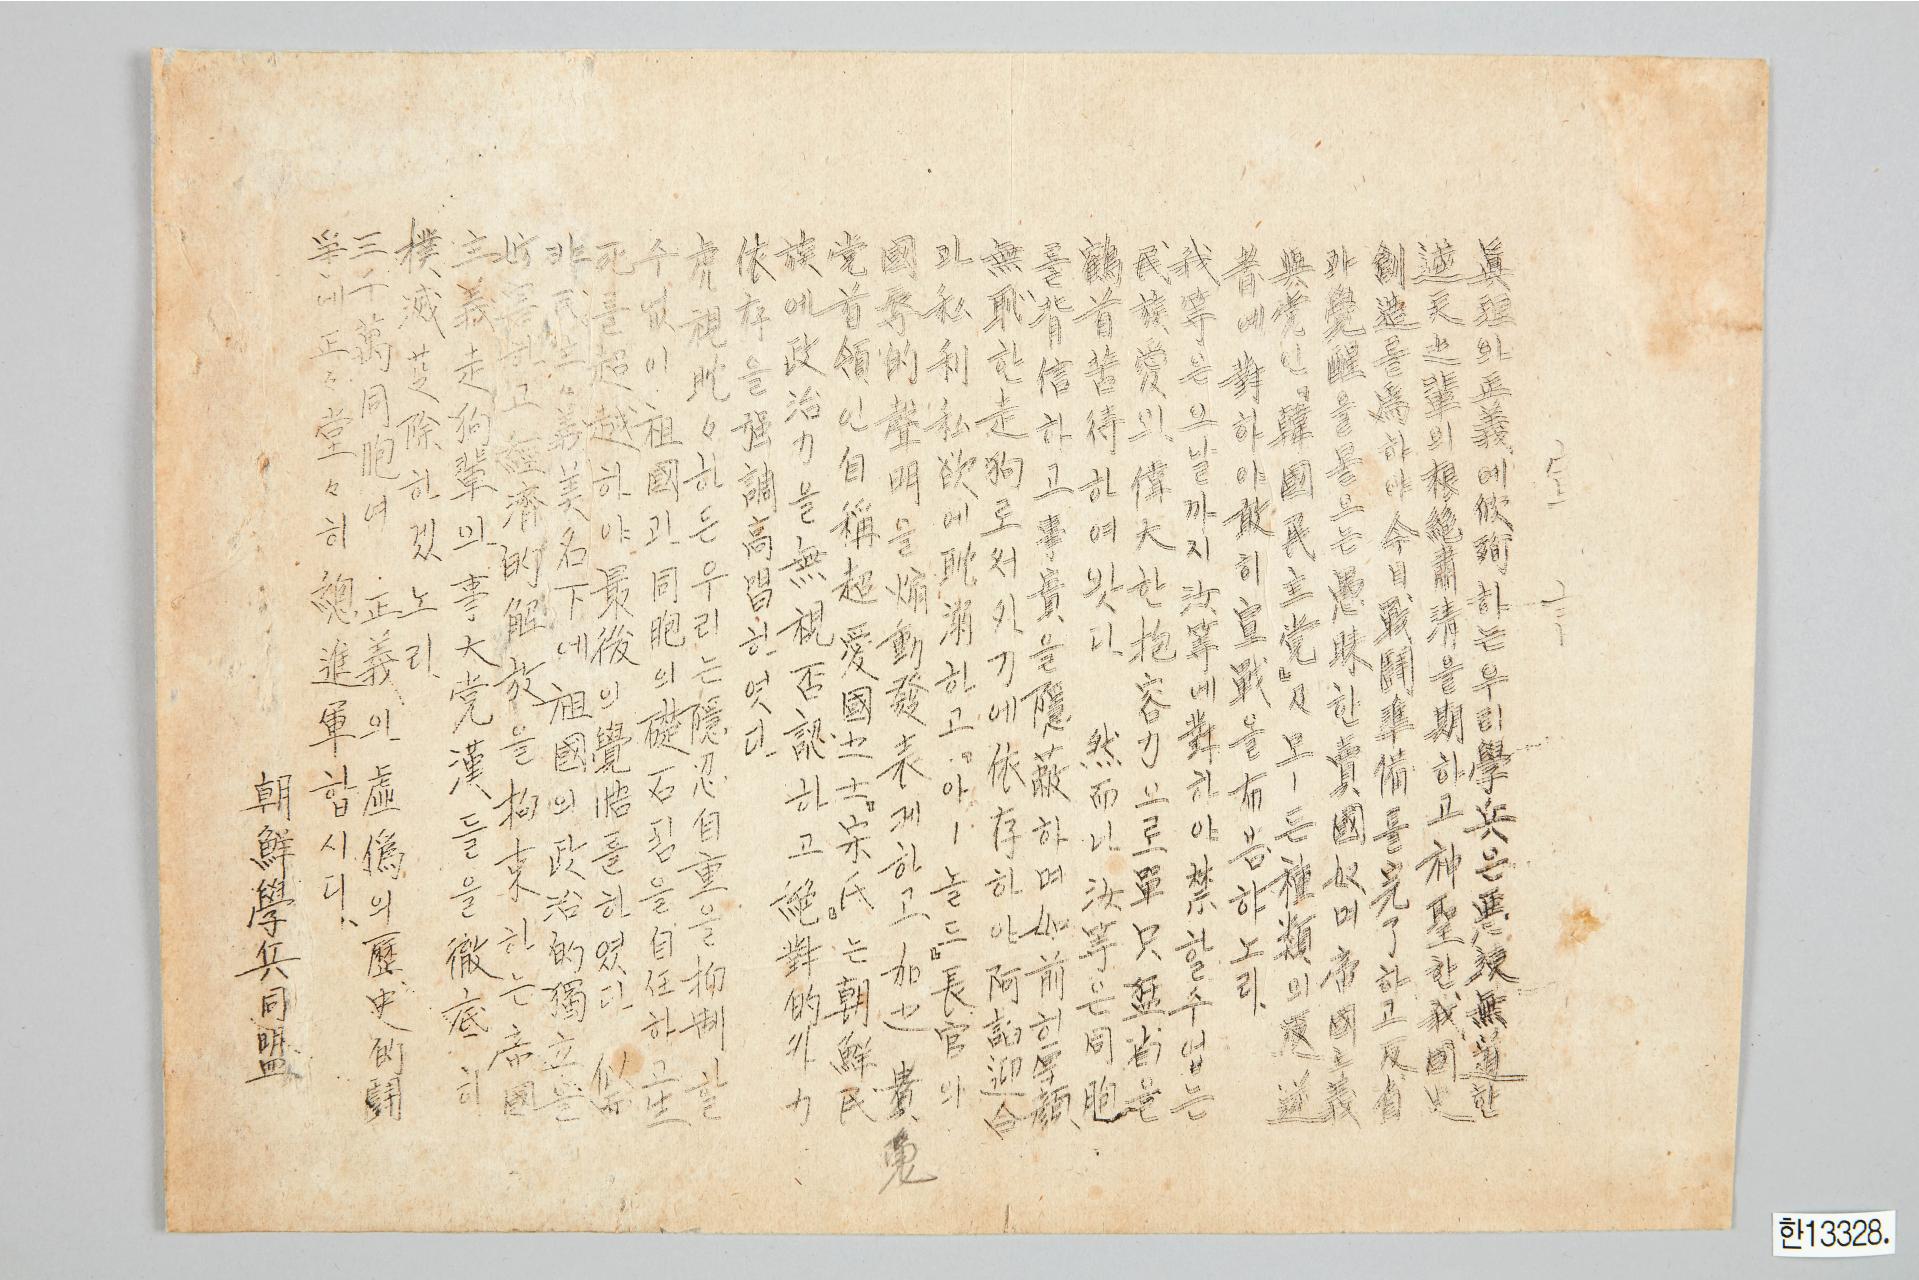 眞理와 正義에 倣殉하는 우리 學兵은 惡辣無道한
逆天之輩의 根絶肅淸을 期하고 神聖한 我國史
創造를 爲하야 今日 戰鬪準備를 完了하고 反省
과 覺醒을 몰으는 愚昧한 賣國奴며 帝國主義
與党인 『韓國民主党』及 모ー든 種類의 返逆
者에 對하야 敢히 宣戰을 布告하노라.
我等은 오날까지 汝等에 對하야 禁할 수 업는
民族愛의 偉大한 抱容力으로 單只 猛省을
鶴首苦待하여 왓다. 然而나 汝等은 同胞
를 背信하고 事實을 隱蔽하며 如前히 厚顔
無恥한 走狗로서 外力에 依存하야 阿諂迎合
과 私利私欲에 耽溺하고 『아ー놀드』長官의
國辱的 聲明을 煽動發表케 하고, 加之 貴
党首領인 自稱 超愛國之士 『宋氏』는 朝鮮民
族에 政治力을 無視 否認하고 絶對的 外力
依存을 强調高唱하엿다.
虎視眈々하든 우리는 隱忍自重을 抑制할
수 없이 祖國과 同胞의 礎石됨을 自任하고 生
死를 超越하야 最後의 覺悟를 하였다.
非民主々義 美名下에 祖國의 政治的 獨立을
妨害하고 經濟的 解放을 拘束하는 帝國
主義 走狗輩의 事大党漢들을 徹底히
撲滅 芟除하겠노라.
三千萬同胞여 正義의 虛僞의 歷史的 鬪
爭에 正々堂々히 總進軍합시다.
朝鮮學兵同盟
한13328.